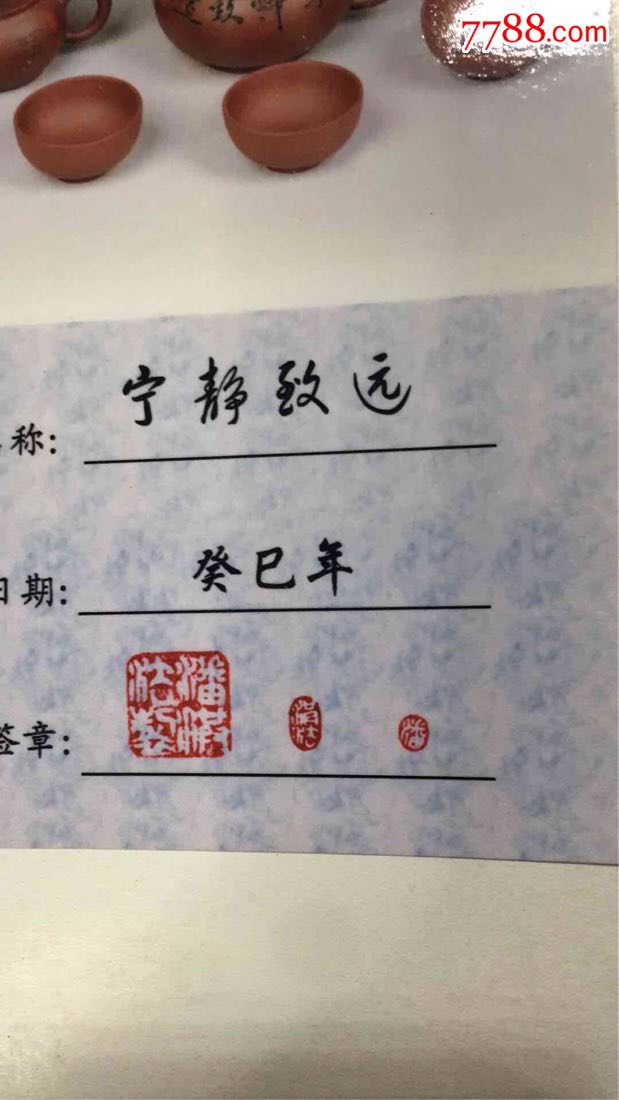 7788.com
致
称: 宁静致远
日期: 癸巳年
签章: